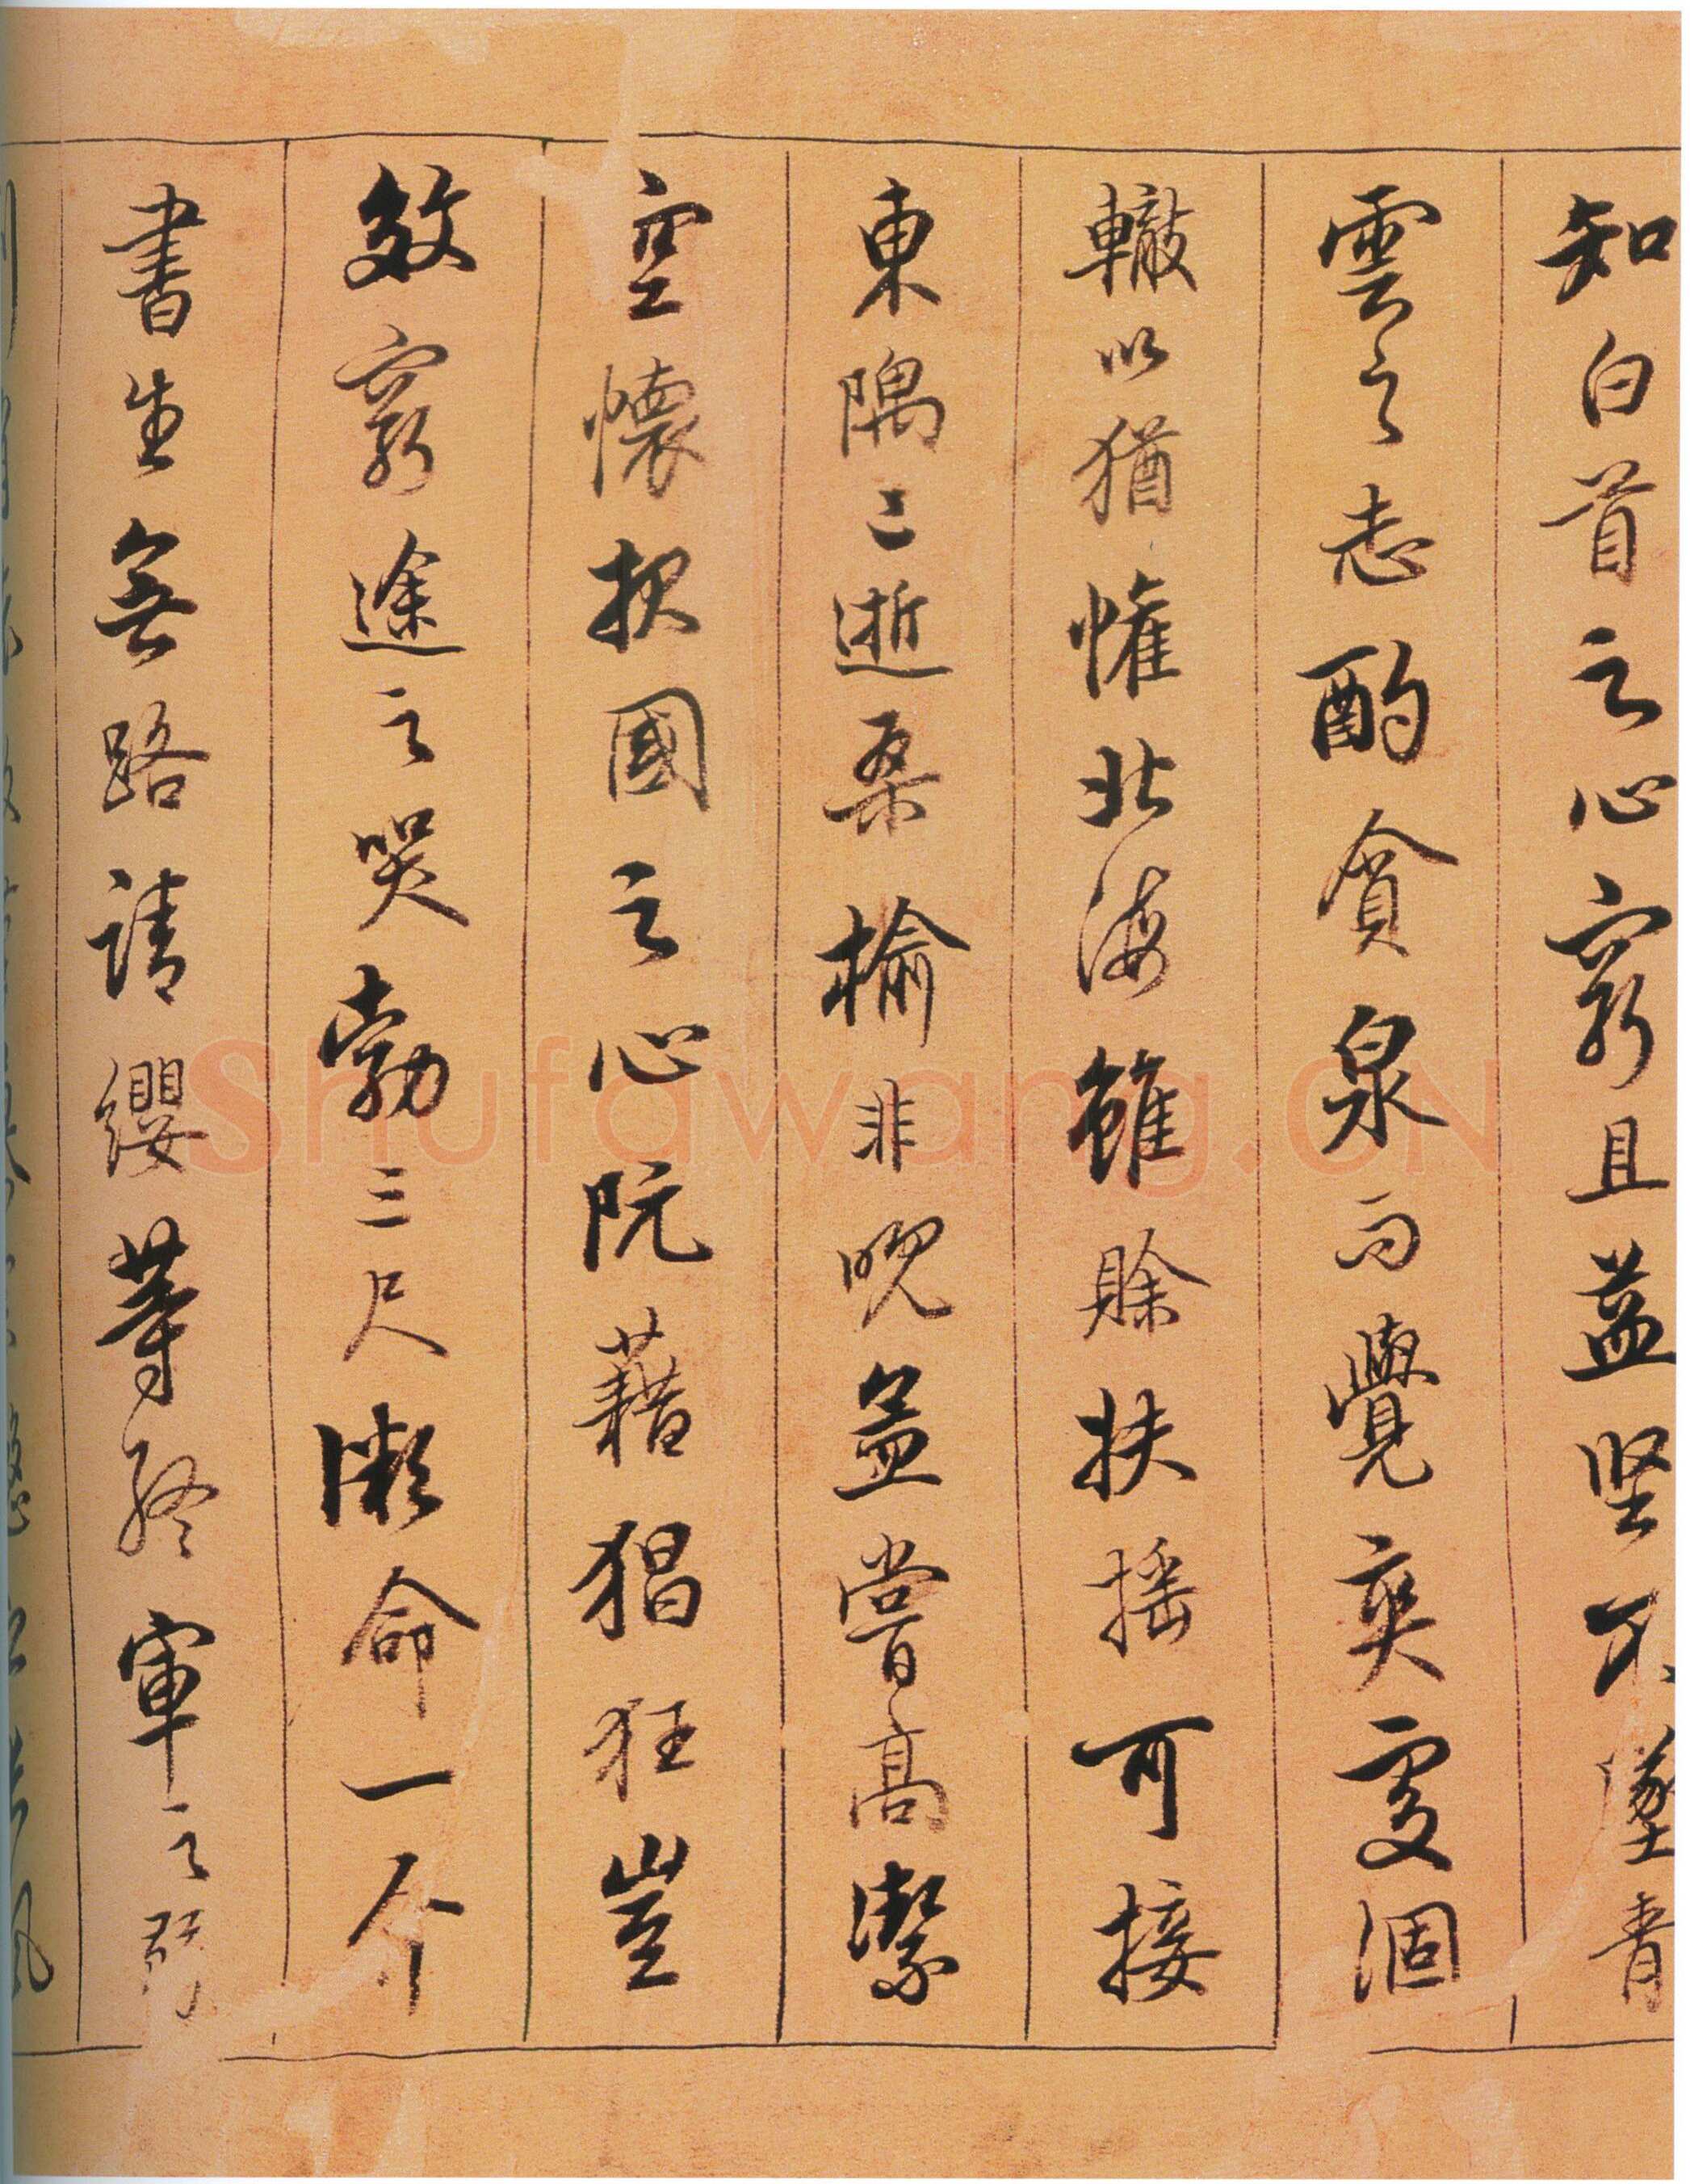 知白首之心窮且益坚不墜青
雲之志酌貪泉而覺爽處涸
轍以猶懽北海雖賒扶摇可接
東隅已逝桑榆非晚孟嘗高潔
空懷報國之心阮藉猖狂豈
效窮途之哭勃三尺微命一介
書生無路請纓等終軍之弱
Shufawang.CN